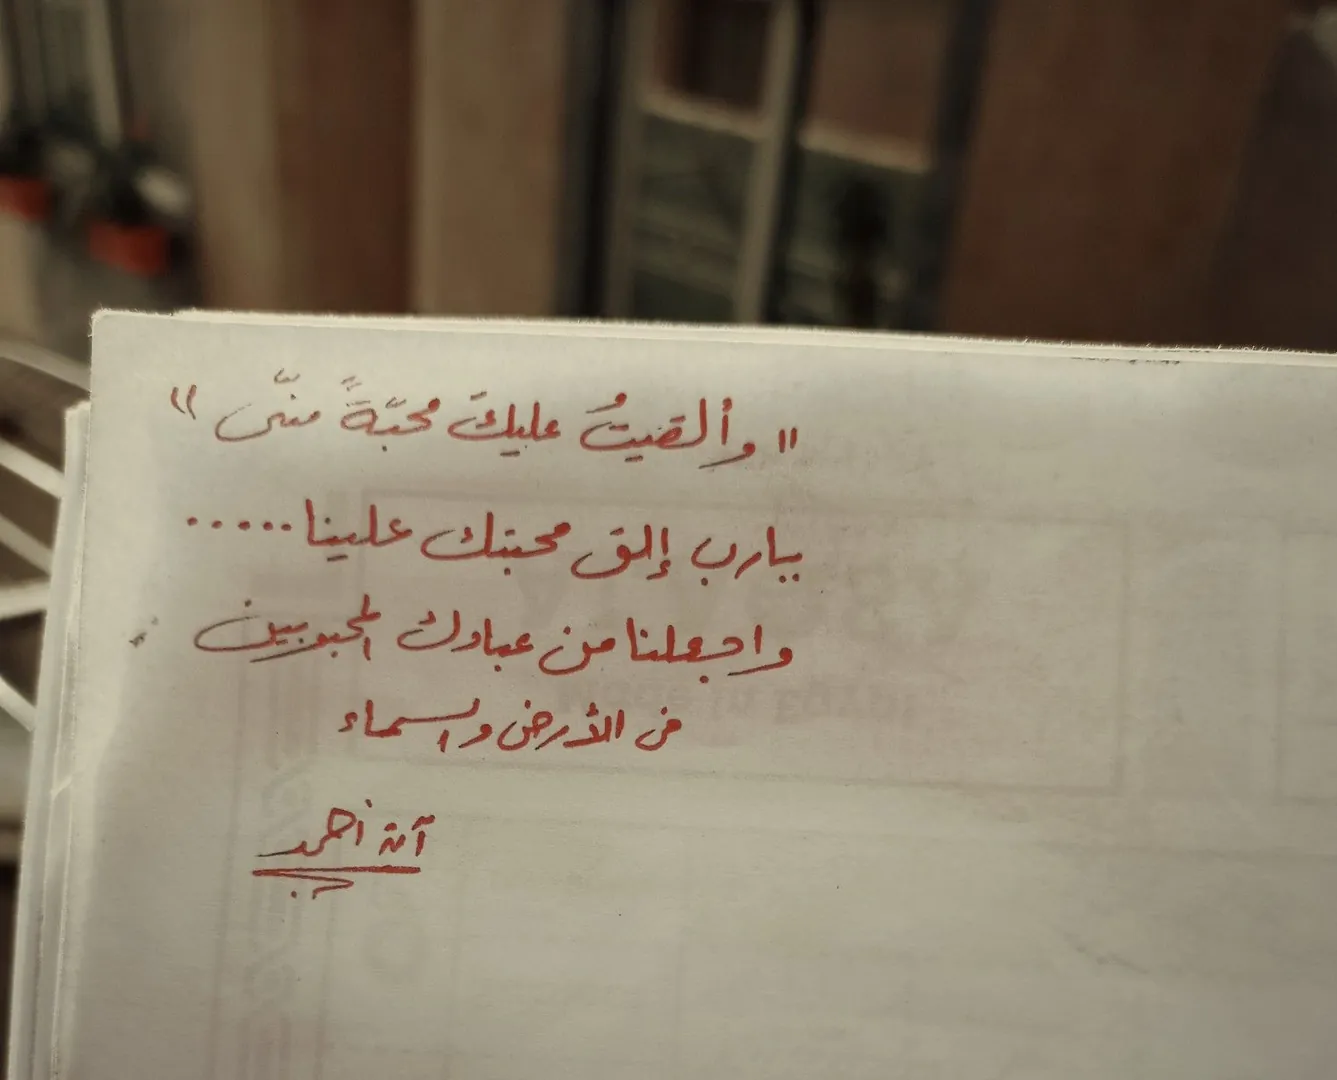 " وألقيتُ عليكَ محبّةً منّى "
يارب إلق محبتك علينا .....
واجعلنا من عبادك المحبوبين
فى الأرض والسماء
آية أحمد